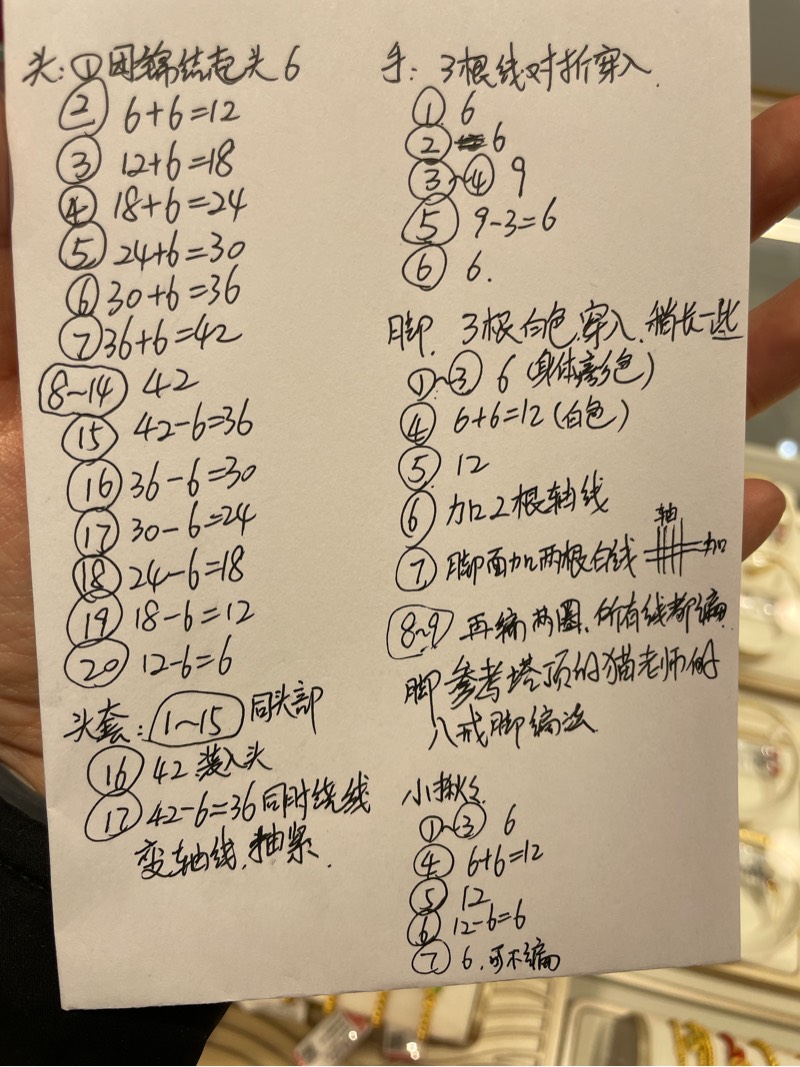 头:①团锦结起头6
② 6+6=12
③ 12+6=18
④ 18+6=24
⑤ 24+6=30
⑥ 30+6=36
⑦ 36+6=42
8~14 42
⑮ 42-6=36
⑯ 36-6=30
⑰ 30-6=24
⑱ 24-6=18
⑲ 18-6=12
⑳ 12-6=6
头套: 1~15 同头部
⑯ 42 装入头
⑰ 42-6=36同时绕线
变轴线,抽紧.
手: 3根线对折穿入.
① 6
② 6
③~④ 9
⑤ 9-3=6
⑥ 6.
脚. 3根白色穿入. 稍长一些
①~③ 6(身体颜色)
④ 6+6=12(白色)
⑤ 12
⑥ 加2根轴线
⑦ 脚面加两根白线
轴
加
8~9 再编两圈、所有线都编.
脚参考塔顶的猫老师的
八戒脚编法.
小揪揪
①~③ 6
④ 6+6=12
⑤ 12
⑥ 12-6=6
⑦ 6.可不编